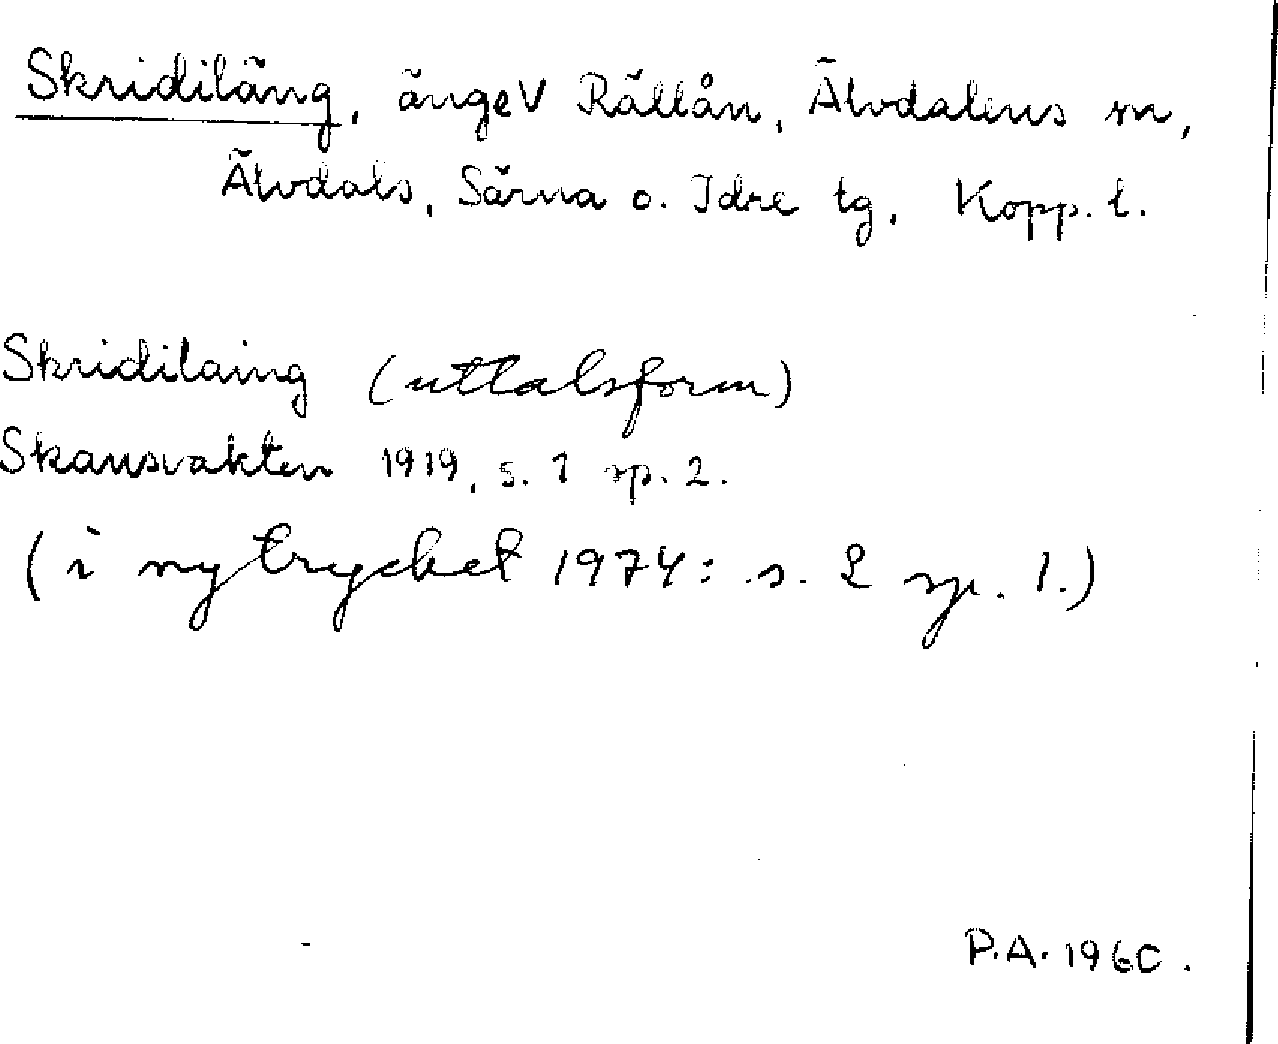 Skridiläng, änge V Rällån, Älvdalens sn,
Älvdals, Särna o. Idre tg, Kopp. l.
Skridilaing (uttalsform)
Skansvakten 1919, s. 1 sp. 2.
(i nytrycket 1974: s. 2 sp. 1.)
P.A. 1960.